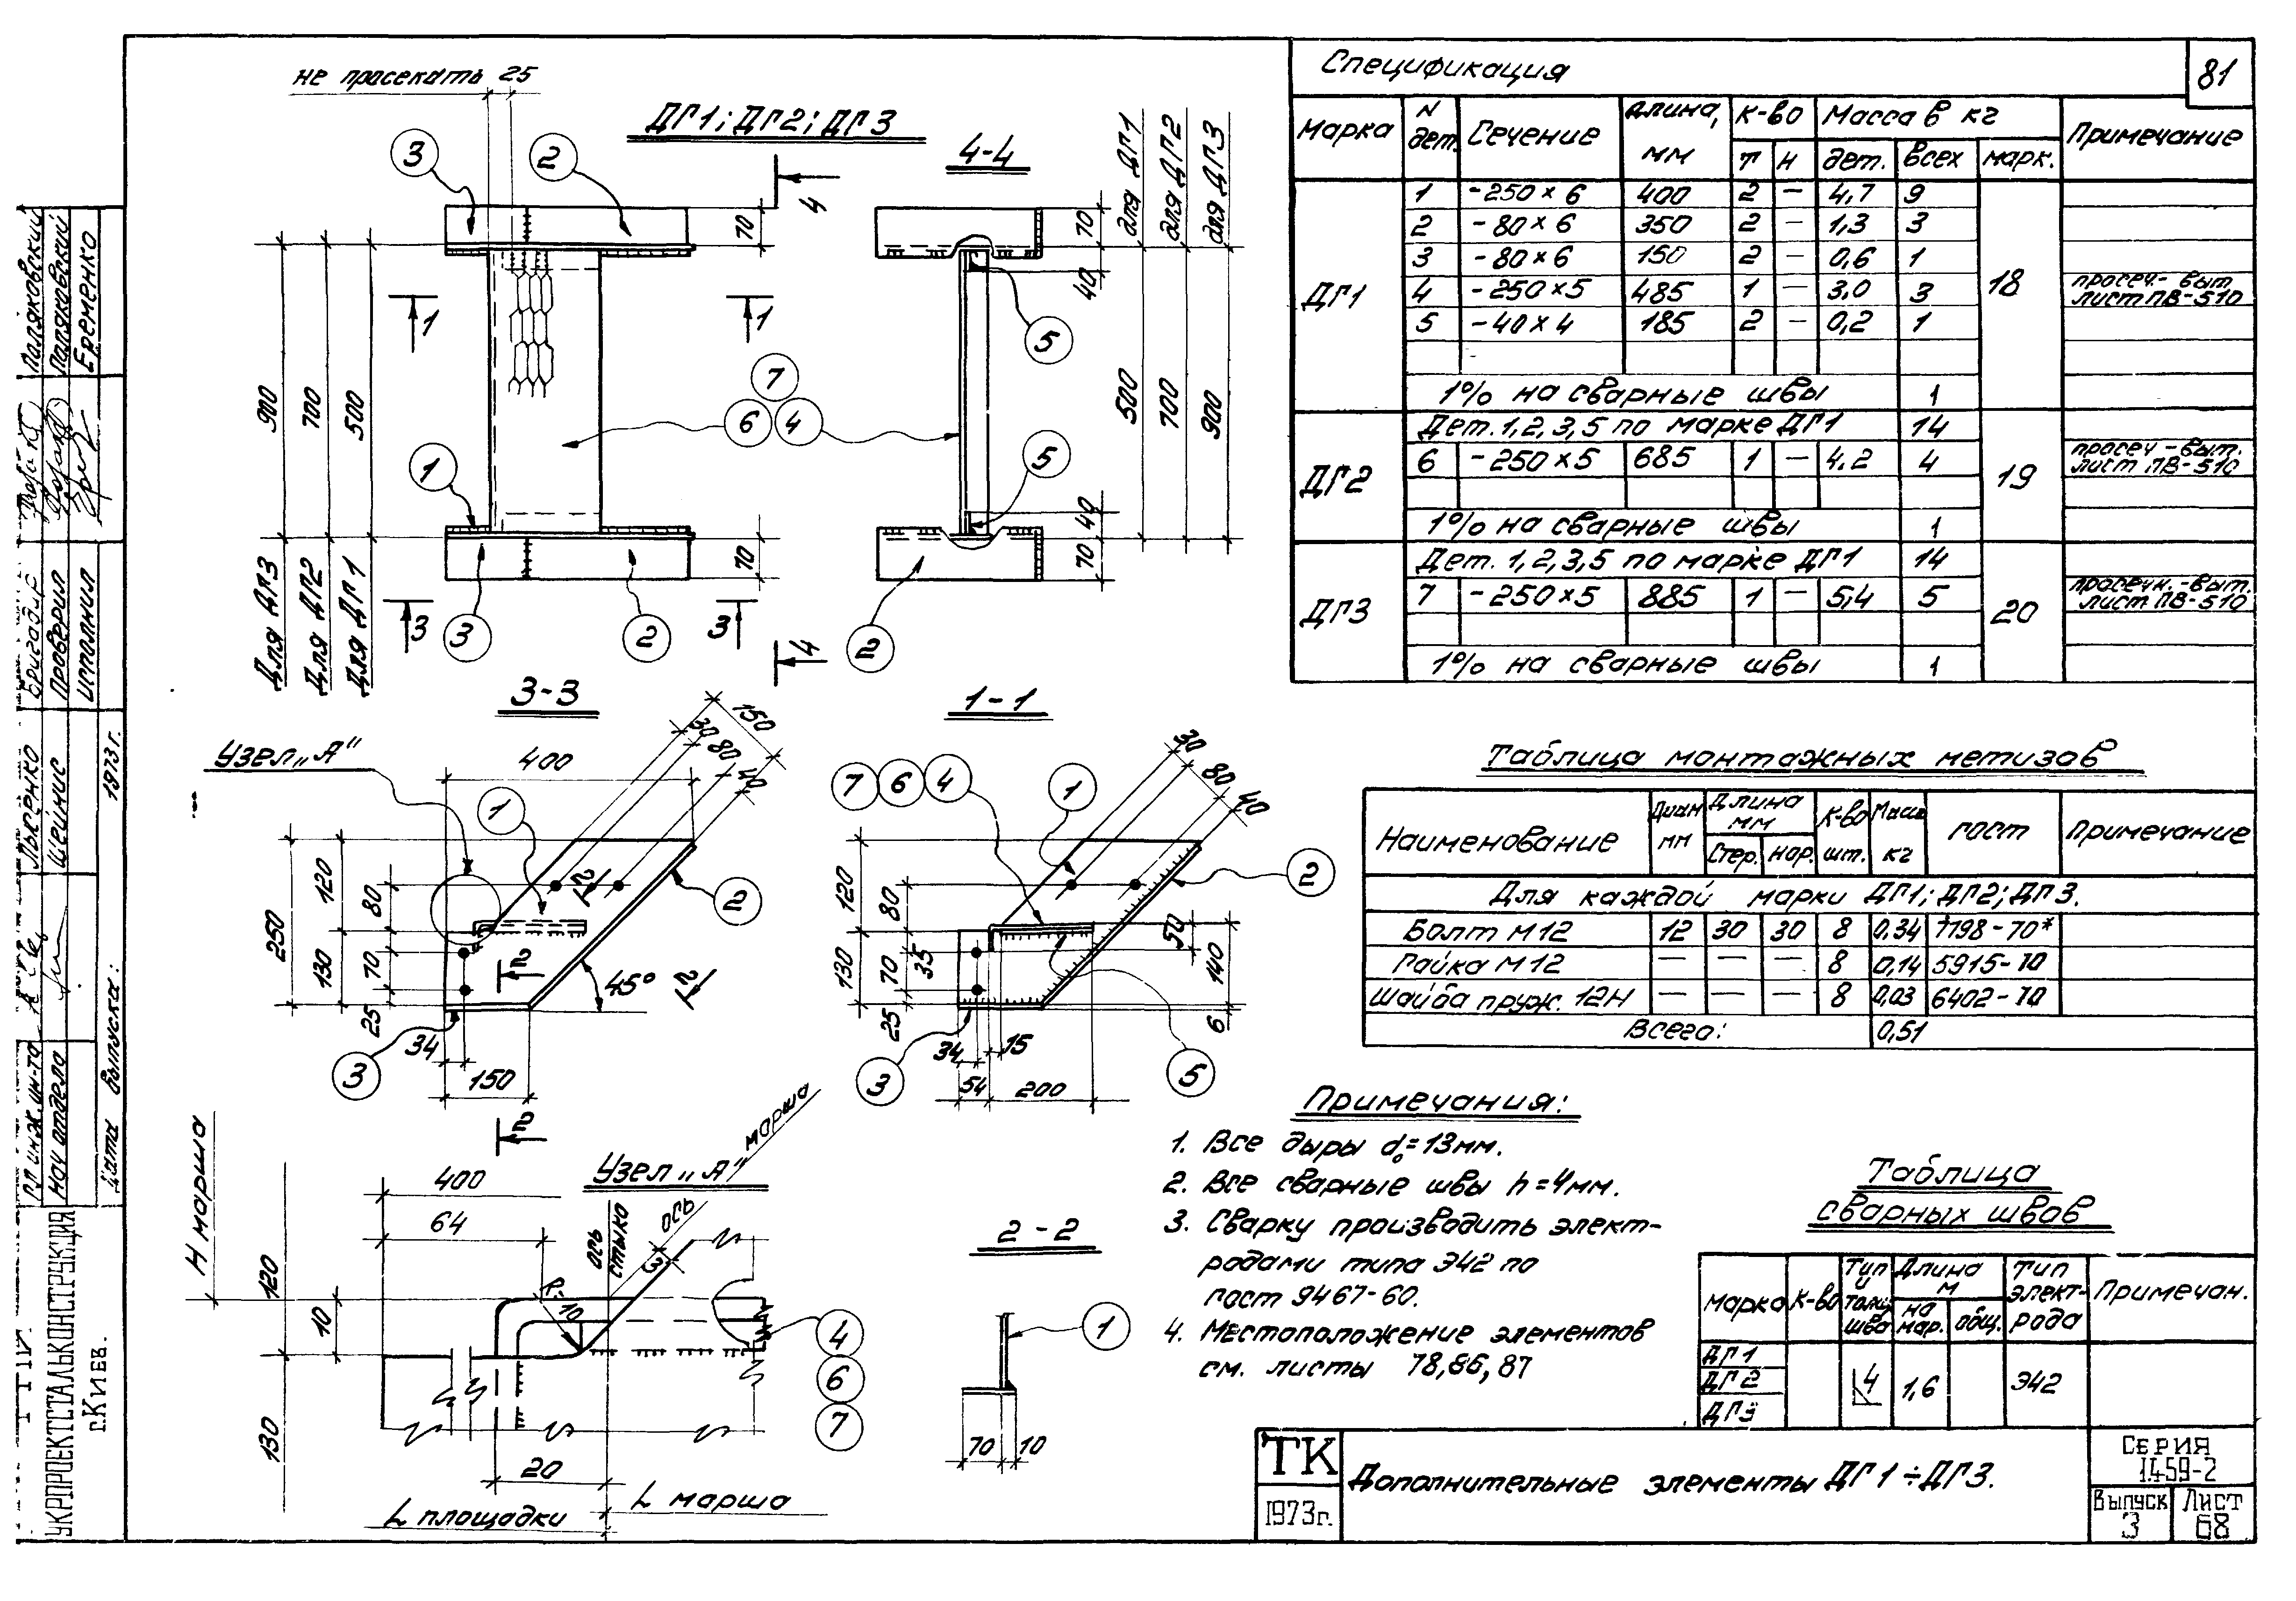 не просекать 25
ДГ1; ДГ2; ДГ3
3
2
4
4-4
70
70
для ДГ1
для ДГ2
для ДГ3
40
1
1
5
7
6
4
900
700
500
500
700
900
1
5
40
70
70
Для ДГ3
Для ДГ2
Для ДГ1
3
3
2
3
4
2
Спецификация
81
Марка
N дет.
Сечение
Длина, мм
К-во
Масса в кг
Примечание
т
н
дет.
всех
марк.
ДГ1
1 -250×6 400 2 — 4,7 9
2 -80×6 350 2 — 1,3 3
3 -80×6 150 2 — 0,6 1
18
4 -250×5 485 1 — 3,0 3 просеч.-выт. лист ПВ-510
5 -40×4 185 2 — 0,2 1
1% на сварные швы 1
ДГ2
Дет. 1,2,3,5 по марке ДГ1 14
6 -250×5 685 1 — 4,2 4 просеч-выт. лист ПВ-510
19
1% на сварные швы 1
ДГ3
Дет. 1,2,3,5 по марке ДГ1 14
7 -250×5 885 1 — 5,4 5 просечн.-выт. лист ПВ-510
20
1% на сварные швы 1
3-3
Узел „А"
400
30
80
40
150
1
2
2
250
120
130
80
70
25
2
2
45°
34
150
3
2
1-1
7
6
4
1
30
80
40
2
120
130
80
70
35
25
50
140
6
34
15
54
200
3
5
Таблица монтажных метизов
Наименование
Диам мм
Длина мм
Стер.
нар.
К-во шт.
Масс кг
ГОСТ
Примечание
Для каждой марки ДГ1; ДГ2; ДГ3.
Болт М12 12 30 30 8 0,34 7798-70*
Гайка М12 — — — 8 0,14 5915-70
Шайба пруж. 12Н — — — 8 0,03 6402-70
Всего: 0,51
Н марша
400
64
Узел „А"
ось марша
ось стыка
3
R=10
120
10
130
4
6
7
20
L площадки
L марша
2-2
1
70
10
Примечания:
1. Все дыры d₀=13мм.
2. Все сварные швы h=4мм.
3. Сварку производить элект-
родами типа Э42 по
гост 9467-60.
4. Местоположение элементов
см. листы 78,86,87
Таблица
сварных швов
Марка
К-во
Тип и толщ. шва
Длина м
на мар.
общ.
Тип элект-рода
Примечан.
ДГ1
ДГ2
ДГ3
4
1,6
Э42
ТК
1973г.
Дополнительные элементы ДГ1÷ДГ3.
Серия
1.459-2
Выпуск
3
Лист
68
Паляковский
Паляковский
Еременко
бригадир
Проверил
Исполнил
Лысенко
Шейнис
1973г.
Гл инж. ин-та
Нач отдела
Дата выпуска:
УКРПРОЕКТСТАЛЬКОНСТРУКЦИЯ
г.Киев.